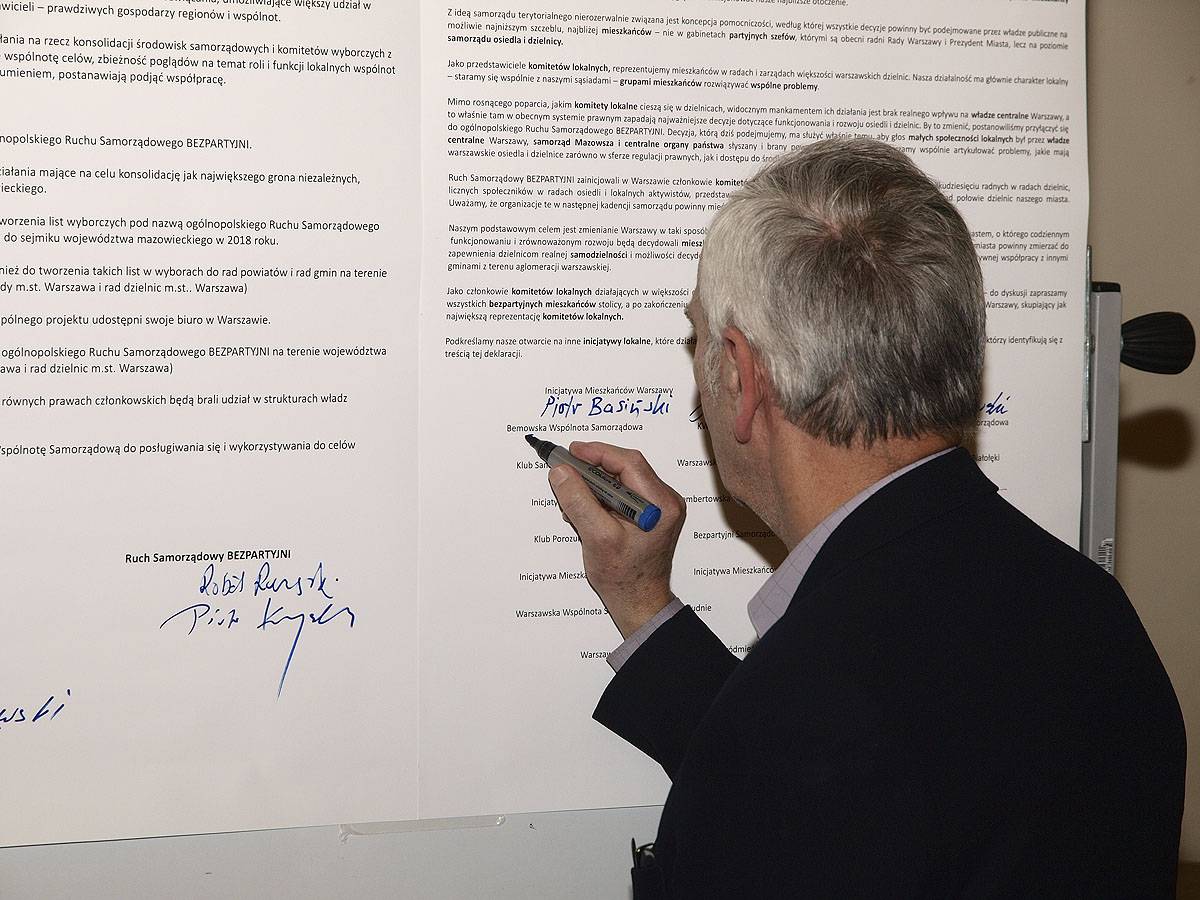 możliwiające większy udział w
wicieli – prawdziwych gospodarzy regionów i wspólnot.
łania na rzecz konsolidacji środowisk samorządowych i komitetów wyborczych z
wspólnotę celów, zbieżność poglądów na temat roli i funkcji lokalnych wspólnot
umieniem, postanawiają podjąć współpracę.
nopolskiego Ruchu Samorządowego BEZPARTYJNI.
ziałania mające na celu konsolidację jak największego grona niezależnych,
wieckiego.
worzenia list wyborczych pod nazwą ogólnopolskiego Ruchu Samorządowego
do sejmiku województwa mazowieckiego w 2018 roku.
nież do tworzenia takich list w wyborach do rad powiatów i rad gmin na terenie
dy m.st. Warszawa i rad dzielnic m.st.. Warszawa)
pólnego projektu udostępni swoje biuro w Warszawie.
ogólnopolskiego Ruchu Samorządowego BEZPARTYJNI na terenie województwa
awa i rad dzielnic m.st. Warszawa)
równych prawach członkowskich będą brali udział w strukturach władz
Wspólnotę Samorządową do posługiwania się i wykorzystywania do celów
Ruch Samorządowy BEZPARTYJNI
Piotr
wski
nasze najbliższe otoczenie.
Z ideą samorządu terytorialnego nierozerwalnie związana jest koncepcja pomocniczości, według której wszystkie decyzje powinny być podejmowane przez władze publiczne na
możliwie najniższym szczeblu, najbliżej mieszkańców – nie w gabinetach partyjnych szefów, którymi są obecni radni Rady Warszawy i Prezydent Miasta, lecz na poziomie
samorządu osiedla i dzielnicy.
Jako przedstawiciele komitetów lokalnych, reprezentujemy mieszkańców w radach i zarządach większości warszawskich dzielnic. Nasza działalność ma głównie charakter lokalny
– staramy się wspólnie z naszymi sąsiadami – grupami mieszkańców rozwiązywać wspólne problemy.
Mimo rosnącego poparcia, jakim komitety lokalne cieszą się w dzielnicach, widocznym mankamentem ich działania jest brak realnego wpływu na władze centralne Warszawy, a
to właśnie tam w obecnym systemie prawnym zapadają najważniejsze decyzje dotyczące funkcjonowania i rozwoju osiedli i dzielnic. By to zmienić, postanowiliśmy przyłączyć się
do ogólnopolskiego Ruchu Samorządowego BEZPARTYJNI. Decyzja, którą dziś podejmujemy, ma służyć właśnie temu, aby głos małych społeczności lokalnych był przez władze
centralne Warszawy, samorząd Mazowsza i centralne organy państwa słyszany i brany pow zamy wspólnie artykułować problemy, jakie mają
warszawskie osiedla i dzielnice zarówno w sferze regulacji prawnych, jak i dostępu do środ
Ruch Samorządowy BEZPARTYJNI zainicjowali w Warszawie członkowie komitet kudziesięciu radnych w radach dzielnic,
licznych społeczników w radach osiedli i lokalnych aktywistów, przedstaw d połowie dzielnic naszego miasta.
Uważamy, że organizacje te w następnej kadencji samorządu powinny mieć
Naszym podstawowym celem jest zmienianie Warszawy w taki sposób astem, o którego codziennym
funkcjonowaniu i zrównoważonym rozwoju będą decydowali miesz miasta powinny zmierzać do
zapewnienia dzielnicom realnej samodzielności i możliwości decyd ywnej współpracy z innymi
gminami z terenu aglomeracji warszawskiej.
Jako członkowie komitetów lokalnych działających w większości – do dyskusji zapraszamy
wszystkich bezpartyjnych mieszkańców stolicy, a po zakończeniu Warszawy, skupiający jak
największą reprezentację komitetów lokalnych.
Podkreślamy nasze otwarcie na inne inicjatywy lokalne, które działa którzy identyfikują się z
treścią tej deklaracji.
Inicjatywa Mieszkańców Warszawy
Piotr Basiński
Bemowska Wspólnota Samorządowa ządowa
Klub Sam Warszawsk Białołęki
Inicjaty mbertowska
Klub Porozu Bezpartyjni Samorządo
Inicjatywa Mieszka Inicjatywa Mieszkańcó
Warszawska Wspólnota S udnie
Warszaw ródmie